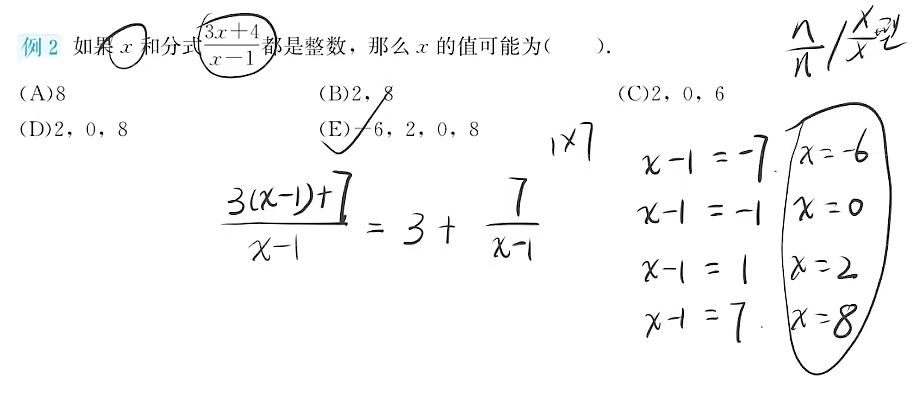 例 2 如果 x 和分式 \frac{3x+4}{x-1} 都是整数，那么 x 的值可能为( ).
\frac{n}{n} / \frac{x}{x} 型
(A)8 (B)2，8 (C)2，0，6
(D)2，0，8 (E)-6，2，0，8
1×7
\frac{3(x-1)+7}{x-1} = 3 + \frac{7}{x-1}
x-1 = -7. x = -6
x-1 = -1 x = 0
x-1 = 1 x = 2
x-1 = 7. x = 8